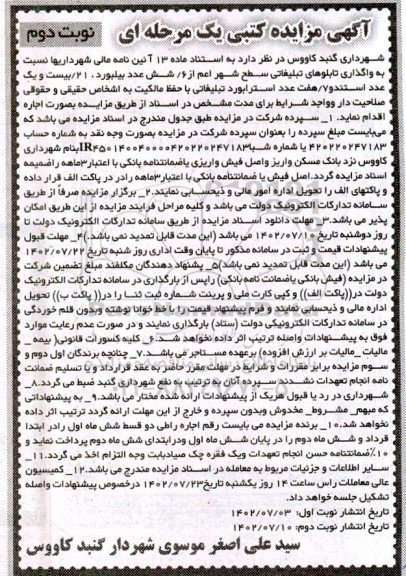 آگهی مزایده کتبی یک مرحله ای
نوبت دوم
شهرداری گنبد کاووس در نظر دارد به استناد ماده ۱۳ آئین نامه مالی شهرداریها نسبت
به واگذاری تابلوهای تبلیغاتی سطح شهر اعم از ۶/ شش عدد بیلبورد، ۲۱/بیست و یک
عدد استندو ۷/هفت عدد استرابورد تبلیغاتی با حفظ مالکیت به اشخاص حقیقی و حقوقی
صلاحیت دار وواجد شرایط برای مدت مشخص در اسناد از طریق مزایده بصورت اجاره
اقدام نماید. ۱_ سپرده شرکت در مزایده طبق جدول مندرج در اسناد مزایده می باشد که
می‌بایست مبلغ سپرده را بعنوان سپرده شرکت در مزایده بصورت وجه نقد به شماره حساب
۴۲۰۲۲۰۲۴۷۱۸۳ یا شماره شبا IR۴۵۰۱۴۰۰۴۰۰۰۰۴۲۰۲۲۰۲۴۷۱۸۳بنام شهرداری
کاووس نزد بانک مسکن واریز واصل فیش واریزی یاضمانتنامه بانکی با اعتبار۳ماهه راضمیمه
اسناد مزایده گردد. اصل فیش یا ضمانتنامه بانکی با اعتبار۳ماهه رادر در پاکت الف قرار داده
و پاکتهای الف را تحویل اداره امور مالی و ذیحسابی نمایند.۲_ برگزار مزایده صرفاً از طریق
سامانه تدارکات الکترونیک دولت می باشد و کلیه مراحل فرایند مزایده از این طریق امکان
پذیر می باشد.۳_ مهلت دانلود اسناد مزایده از طریق سامانه تدارکات الکترونیک دولت تا
روز دوشنبه تاریخ ۱۴۰۲/۰۷/۱۰ می باشد (این مدت قابل تمدید نمی باشد.)۴_ مهلت قبول
پیشنهادات قیمت و ثبت در سامانه مذکور تا پایان وقت اداری روز شنبه تاریخ ۱۴۰۲/۰۷/۲۲
می باشد (این مدت قابل تمدید نمی باشد)۵_ پیشنهاد دهندگان مکلفند مبلغ تضمین شرکت
در مزایده (فیش بانکی یاضمانت نامه بانکی) راپس از بارگذاری در سامانه تدارکات الکترونیک
دولت در((پاکت الف)) و کپی کارت ملی و پرینت شماره ثبت ثنا را در(( پاکت ب)) تحویل
اداره مالی و ذیحسابی نمایند و فرم پیشنهاد قیمت را با خط خوانا نوشته وبدون قلم خوردگی
در سامانه تدارکات الکترونیکی دولت (ستاد) بارگذاری نمایند و در صورت عدم رعایت موارد
فوق به پیشنهادات واصله ترتیب اثر داده نخواهد شد.۶_ کلیه کسورات قانونی( بیمه _
مالیات _مالیات بر ارزش افزوده) برعهده مستاجر می باشد.۷_ چنانچه برندگان اول دوم و
سوم مزایده برابر مقررات و شرایط در مهلت مقرر حاضر به عقد قرارداد و یا تسلیم ضمانت
نامه انجام تعهدات نشدند سپرده آنان به ترتیب به نفع شهرداری گنبد ضبط می گردد.۸_
شهرداری در رد یا قبول هریک از پیشنهادات ارائه شده مختار می باشد.۹_ به پیشنهاداتی
که مبهم_ مشروط_ مخدوش وبدون سپرده و خارج از این مهلت ارائه گردد ترتیب اثر داده
نخواهد شد.۱۰_ برنده مزایده می بایست رقم اجاره راطی دو قسط شش ماه اول رادر ابتدا
قرداد و شش ماه دوم را در پایان شش ماه اول ودرابتدای شش ماه دوم پرداخت نماید و
۱۰٪ضمانتنامه حسن انجام تعهدات ویک فقره چک صیادبابت وجه التزام اخذ می گردد.۱۱_
سایر اطلاعات و جزئیات مربوط به معامله در اسناد مزایده مندرج می باشد.۱۲_ کمیسیون
عالی معاملات راس ساعت ۱۴ روز یکشنبه تاریخ۱۴۰۲/۰۷/۲۳ درخصوص پیشنهادات واصله
تشکیل جلسه خواهد داد.
تاریخ انتشار نوبت اول: ۱۴۰۲/۰۷/۰۳
تاریخ انتشار نوبت دوم: ۱۴۰۲/۰۷/۱۰
سید علی اصغر موسوی شهردار گنبد کاووس